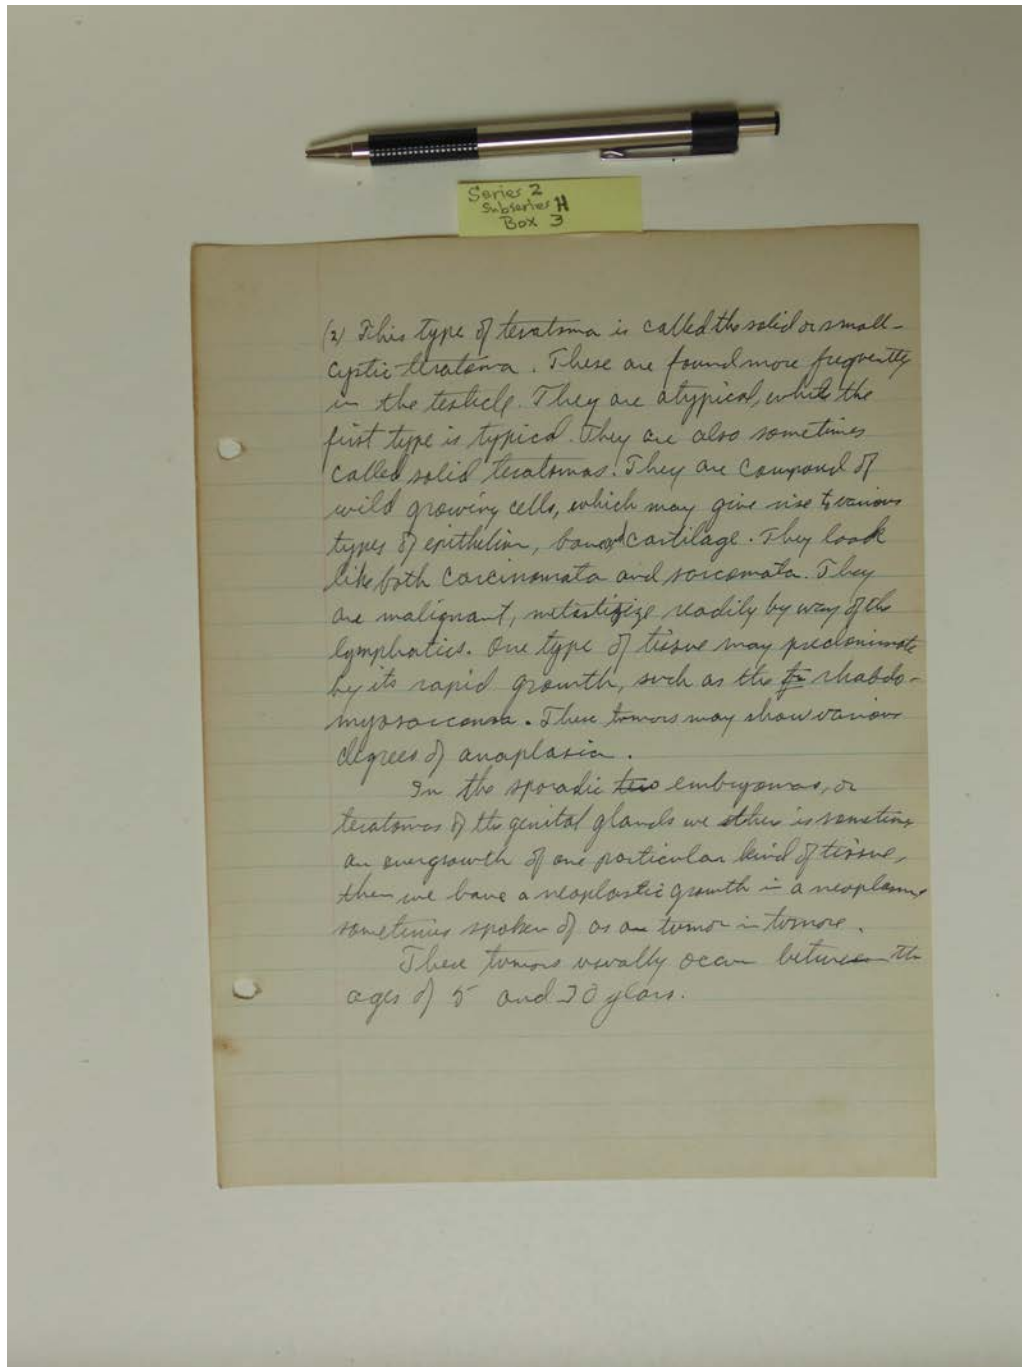 Series 2
Subseries H
Box 3
(2) This type of teratoma is called the solid or small-
cystic teratoma. These are found more frequently
in the testicle. They are atypical, while the
first type is typical. They are also sometimes
called solid teratomas. They are composed of
wild growing cells, which may give rise to various
types of epithelium, bone and cartilage. They look
like both carcinomata and sarcomata. They
are malignant, metastisize readily by way of the
lymphatics. One type of tissue may predominate
by its rapid growth, such as the rhabdo-
myosarcoma. These tumors may show various
degrees of anaplasia.
In the sporadic embryomas, or
teratomas of the genital glands we there is sometimes
an overgrowth of one particular kind of tissue,
then we have a neoplastic growth in a neoplasm,
sometimes spoken of as a tumor in tumore.
These tumors usually occur between the
ages of 5 and 30 years.